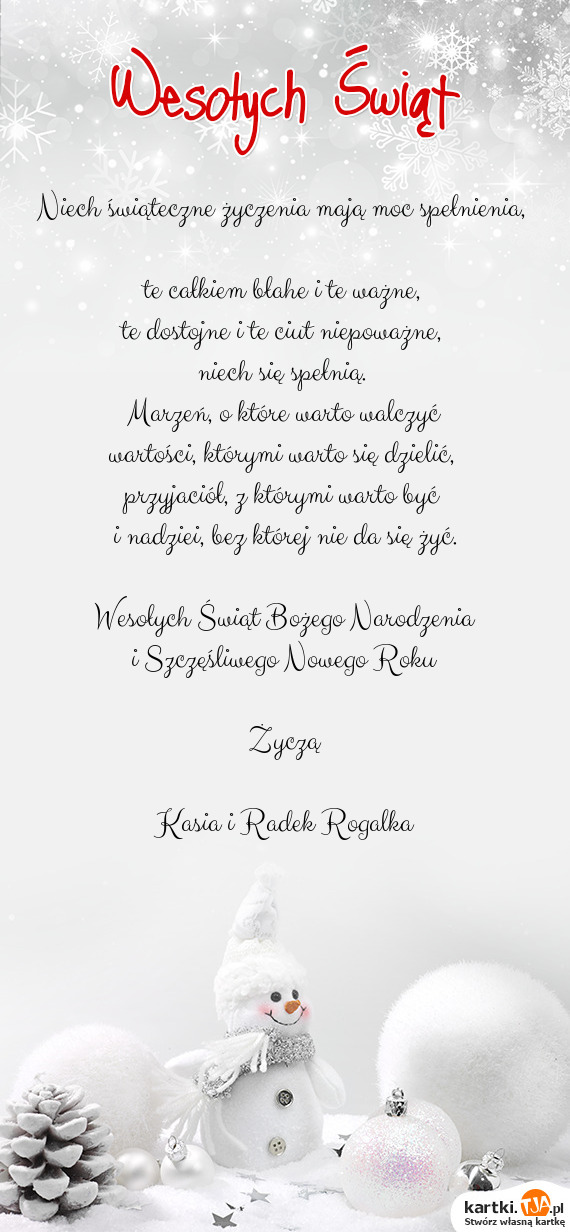 Wesołych Świąt
Niech świąteczne życzenia mają moc spełnienia,
te całkiem błahe i te ważne,
te dostojne i te ciut niepoważne,
niech się spełnią.
Marzeń, o które warto walczyć
wartości, którymi warto się dzielić,
przyjaciół, z którymi warto być
i nadziei, bez której nie da się żyć.
Wesołych Świąt Bożego Narodzenia
i Szczęśliwego Nowego Roku
Życzą
Kasia i Radek Rogalka
kartki.TJA.pl
Stwórz własną kartkę